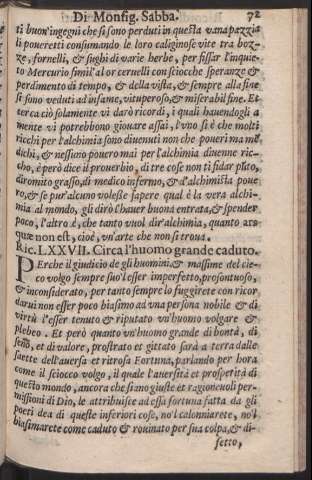 Di Monsig. Sabba. 72
ti buon'ingegni che si sono perduti in questa vana pazzia
li poueretti consumando le loro caliginose vite tra boz-
ze, fornelli, & sughi di varie herbe, per fissar l'inquie-
to Mercurio simil'al or ceruelli con sciocche speranze &
perdimento di tempo, & della vista, & sempre alla fine
si sono veduti ad infame, vituperoso, & miserabil fine. Et
cerca ciò solamente vi darò ricordi, i quali hauendogli a
mente vi potrebbono giouare assai, l'vno si è che molti
ricchi per l'alchimia sono diuenuti non che poueri ma me
dichi, & nessiono pouero mai per l'alchimia diuenne ric-
cho, è però dice il prouerbio, di tre cose non ti fidar pūto,
di romito grasso, di medico infermo, & d'alchimista poue
ro, & se pur'alcuno volesse sapere qual è la vera alchi-
mia al mondo, gli dirò c'hauer buona entrata, & spender
poco, l'altro è, che tanto vuol dir'alchimia, quanto ars
quæ non est, cioè, vn'arte che non si troua.
Ric. LXXVII. Circa l'huomo grande caduto.
PErche il giudicio de gli huomini, & massime del cie-
co volgo sempre suol'esser imperfetto, prosontuoso,
& inconsiderato, per tanto sempre lo fuggirete con ricor
darui non esser poco biasimo ad vna persona nobile & di
virtù l'esser tenuto & riputato vn'huomo volgare &
plebeo. Et però quanto vn'huomo grande di bontà, di
senō, et di valore, prostrato et gittato sarà a terra dalle
saette dell'auersa et ritrosa Fortuna, parlando per hora
come il sciocco volgo, il quale l'auersità et prosperità di
questo mondo, ancora che siano giuste et ragioneuoli per-
missioni di Dio, le attribuisce ad essa fortuna fatta da gli
poeti dea di queste inferiori cose, no'l calonniarete, no'l
biasimarete come caduto & rouinato per sua colpa, & di-
fetto,